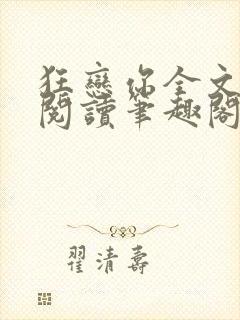 狂戀你全文
閱讀筆趣閣
翟清壽